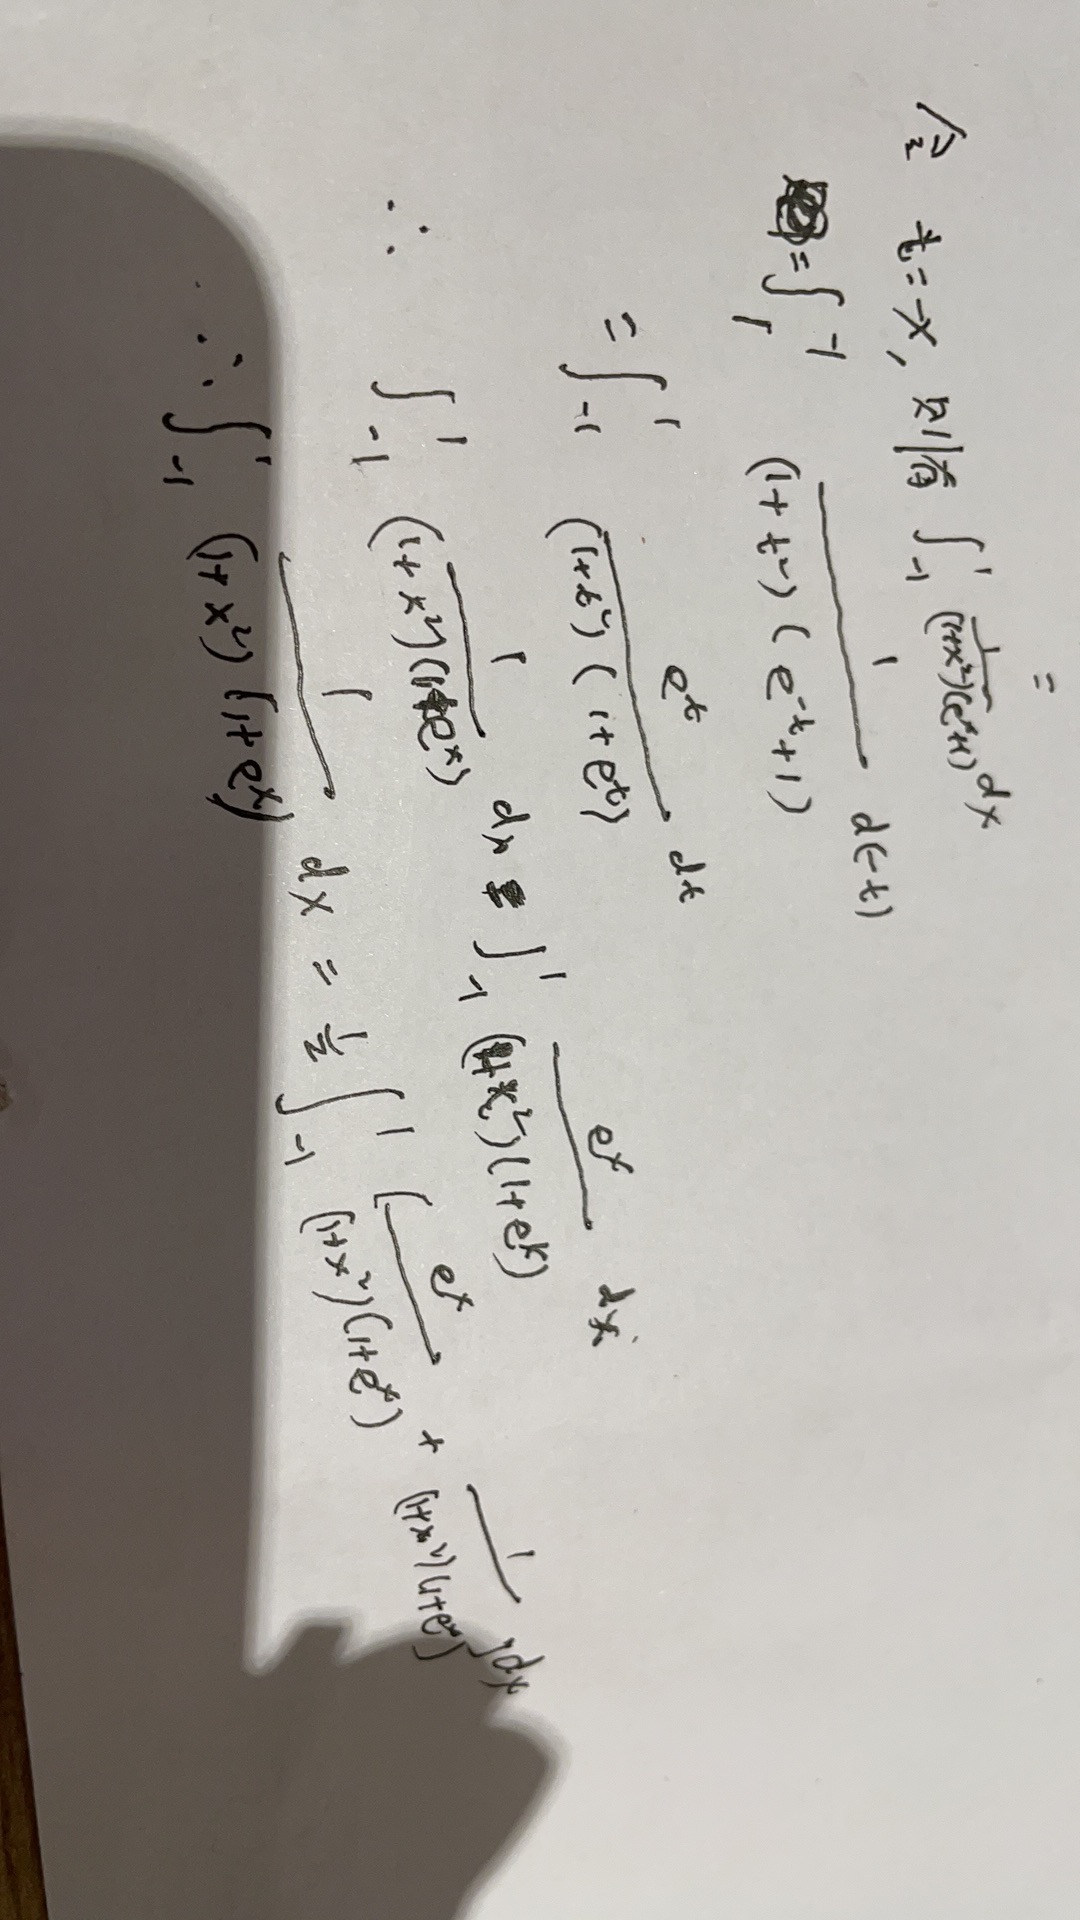 =
令 t=-x, 则有 ∫_{-1}^{1} \frac{1}{(1+x²)(e^x+1)} dx
= ∫_{1}^{-1} \frac{1}{(1+t²)(e^{-t}+1)} d(-t)
= ∫_{-1}^{1} \frac{e^t}{(1+t²)(1+e^t)} dt
∴ ∫_{-1}^{1} \frac{1}{(1+x²)(1+e^x)} dx = ∫_{-1}^{1} \frac{e^x}{(1+x²)(1+e^x)} dx
∴ ∫_{-1}^{1} \frac{1}{(1+x²)(1+e^x)} dx = \frac{1}{2} ∫_{-1}^{1} [\frac{e^x}{(1+x²)(1+e^x)} + \frac{1}{(1+x²)(1+e^x)}] dx